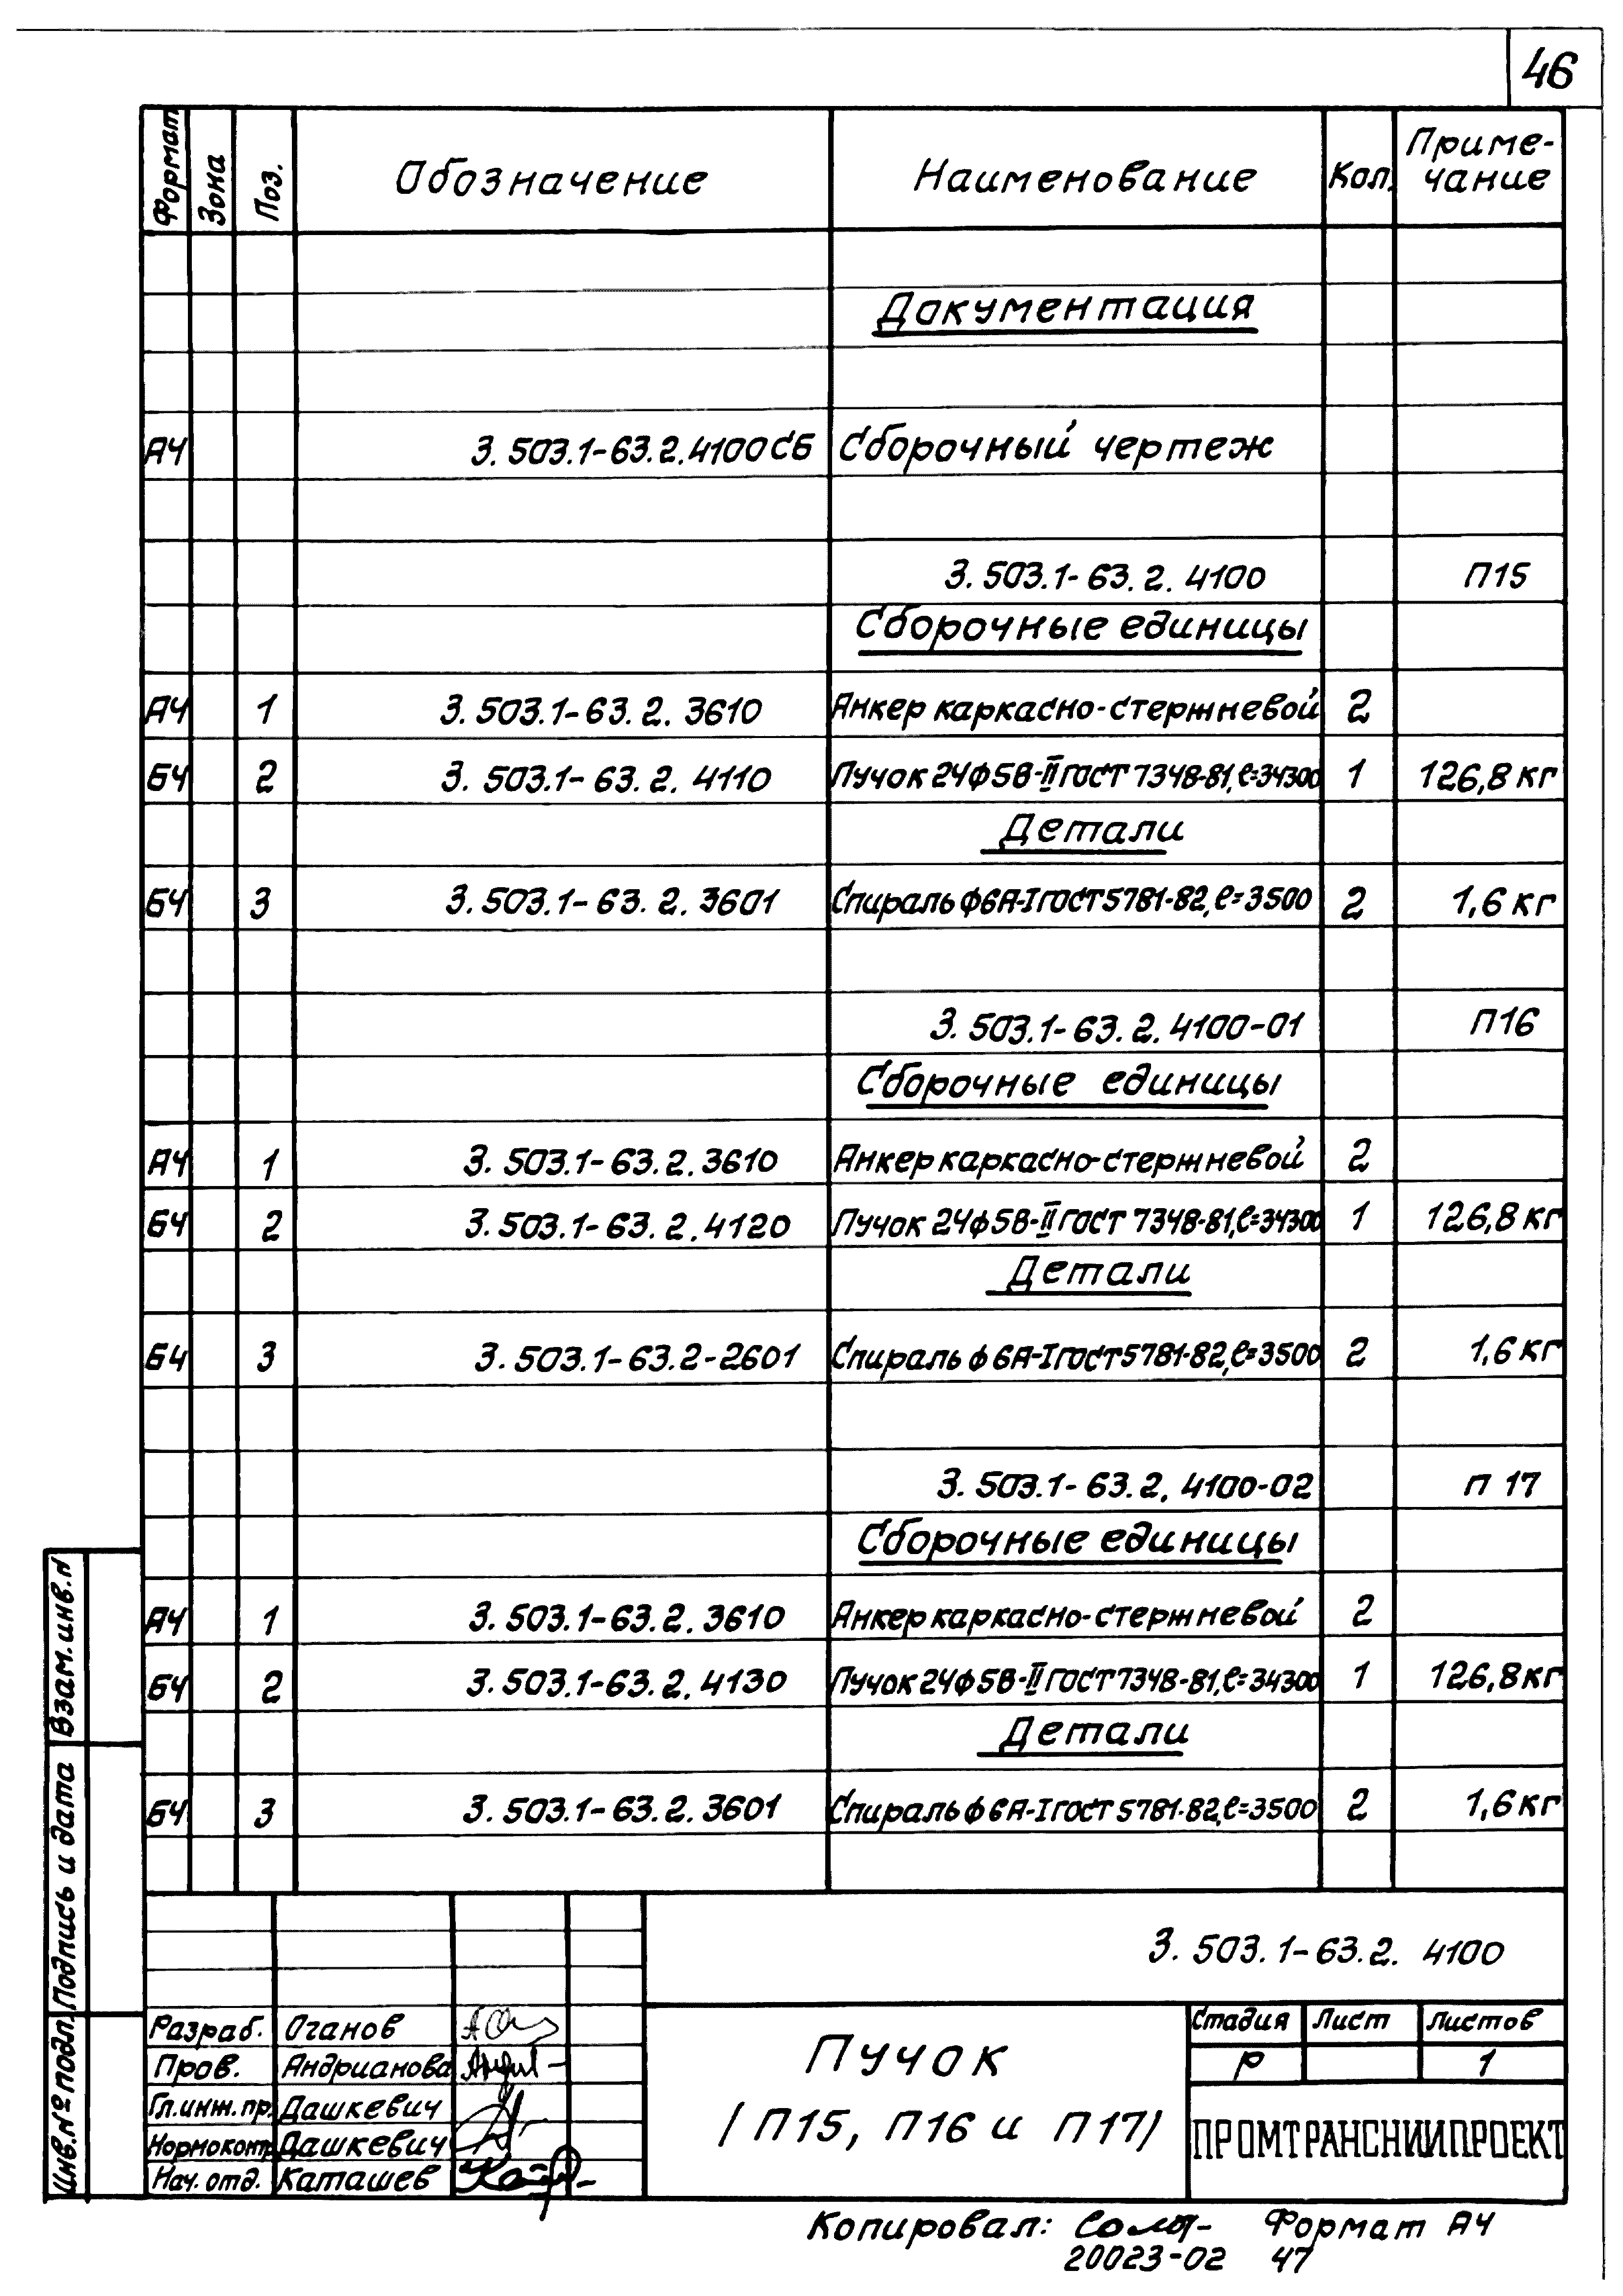 46
Формат Зона Поз. Обозначение Наименование Кол. Приме-
чание
Документация
А4 3.503.1-63.2.4100СБ Сборочный чертеж
3.503.1-63.2.4100 П15
Сборочные единицы
А4 1 3.503.1-63.2.3610 Анкер каркасно-стержневой 2
БЧ 2 3.503.1-63.2.4110 Пучок 24ф5В-II ГОСТ 7348-81, ℓ=34300 1 126,8 кг
Детали
БЧ 3 3.503.1-63.2.3601 Спираль ф6А-I ГОСТ 5781-82, ℓ=3500 2 1,6 кг
3.503.1-63.2.4100-01 П16
Сборочные единицы
А4 1 3.503.1-63.2.3610 Анкер каркасно-стержневой 2
БЧ 2 3.503.1-63.2.4120 Пучок 24ф5В-II ГОСТ 7348-81, ℓ=34300 1 126,8 кг
Детали
БЧ 3 3.503.1-63.2-2601 Спираль ф6А-I ГОСТ 5781-82, ℓ=3500 2 1,6 кг
3.503.1-63.2.4100-02 П17
Сборочные единицы
А4 1 3.503.1-63.2.3610 Анкер каркасно-стержневой 2
БЧ 2 3.503.1-63.2.4130 Пучок 24ф5В-II ГОСТ 7348-81, ℓ=34300 1 126,8 кг
Детали
БЧ 3 3.503.1-63.2.3601 Спираль ф6А-I ГОСТ 5781-82, ℓ=3500 2 1,6 кг
Взам. инв. N
Подпись и дата
Инв. № подл.
3.503.1-63.2.4100
Разраб. Оганов
Пров. Андрианова
Гл. инж. пр. Дашкевич
Нормоконтр. Дашкевич
Нач. отд. Каташев
Пучок
(П15, П16 и П17)
Стадия Лист Листов
Р 1
ПРОМТРАНСНИИПРОЕКТ
Копировал: Формат А4
20023-02 47